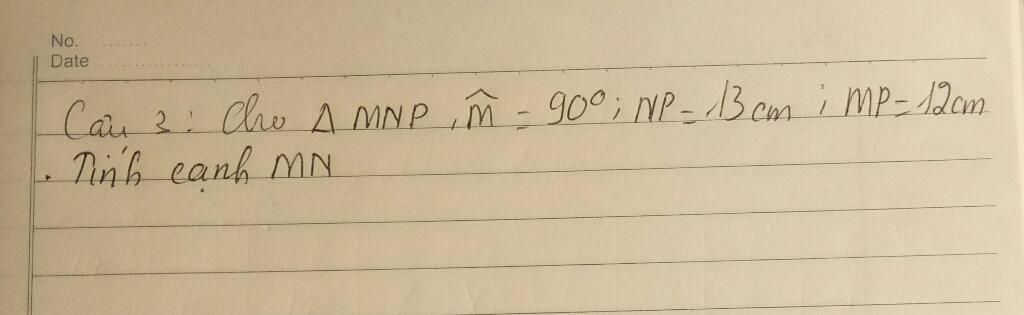 No.
Date
Câu 3 : Cho Δ MNP , M̂ = 90° ; NP = 13 cm ; MP = 12cm
. Tính cạnh MN